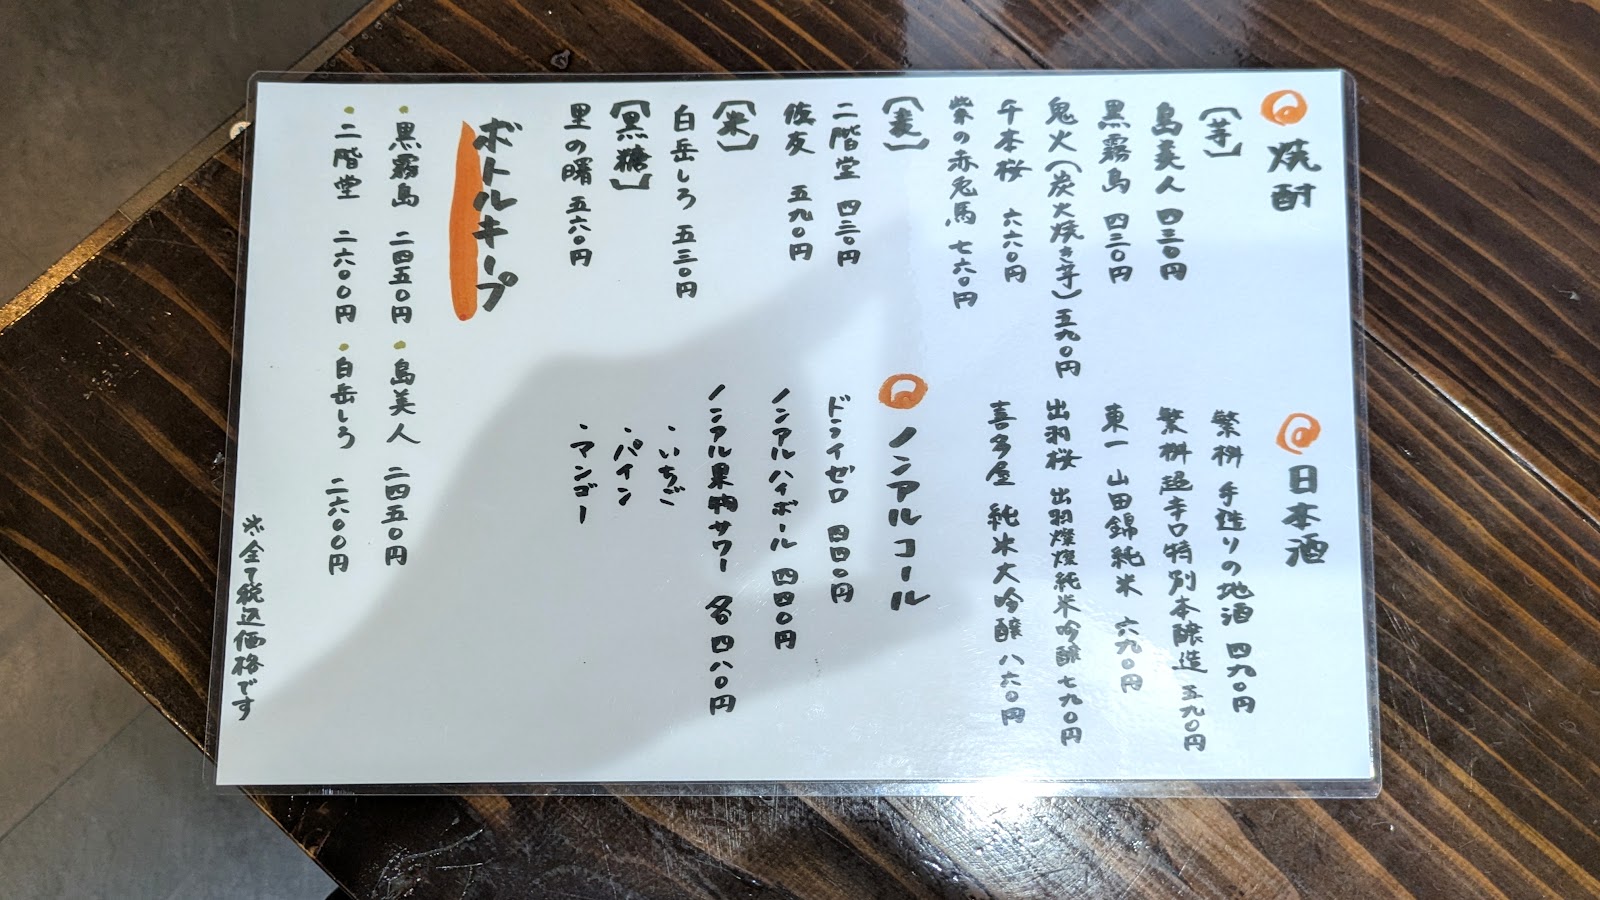 焼酎
【芋】
島美人 四三〇円
黒霧島 四三〇円
鬼火(炭火焼き芋) 五九〇円
千本桜 六六〇円
紫の赤兎馬 七六〇円
【麦】
二階堂 四三〇円
佐友 五九〇円
【米】
白岳しろ 五三〇円
【黒糖】
里の曙 五六〇円
日本酒
繁桝 手造りの地酒 四九〇円
繁桝 超辛口特別本醸造 五九〇円
東一 山田錦純米 六九〇円
出羽桜 出羽燦燦純米吟醸 七九〇円
喜多屋 純米大吟醸 八六〇円
ノンアルコール
ドライゼロ 四四〇円
ノンアルハイボール 四四〇円
ノンアル果物サワー 各四八〇円
・いちご
・パイン
・マンゴー
ボトルキープ
・黒霧島 二四五〇円 ・島美人 二四五〇円
・二階堂 二六〇〇円 ・白岳しろ 二六〇〇円
※全て税込価格です